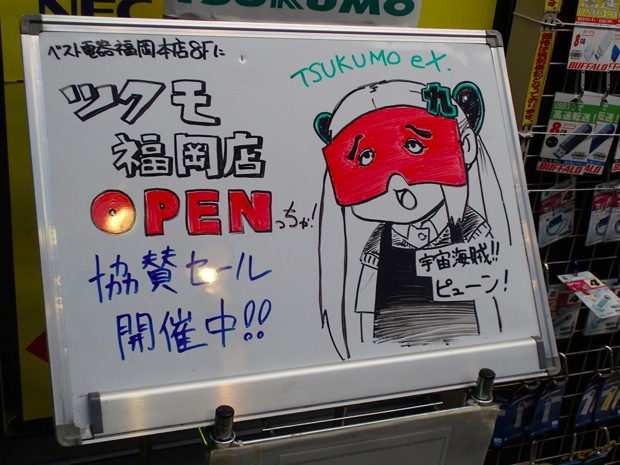 NEC
TSUKUMO
ベスト電器福岡本店8Fに
ツクモ
福岡店
OPENっちゃ!
協賛セール
開催中!!
TSUKUMO ex.
九
宇宙海賊!!
ピューン!
BUFFALO
高速転送!
8GB
BUFFALO
4